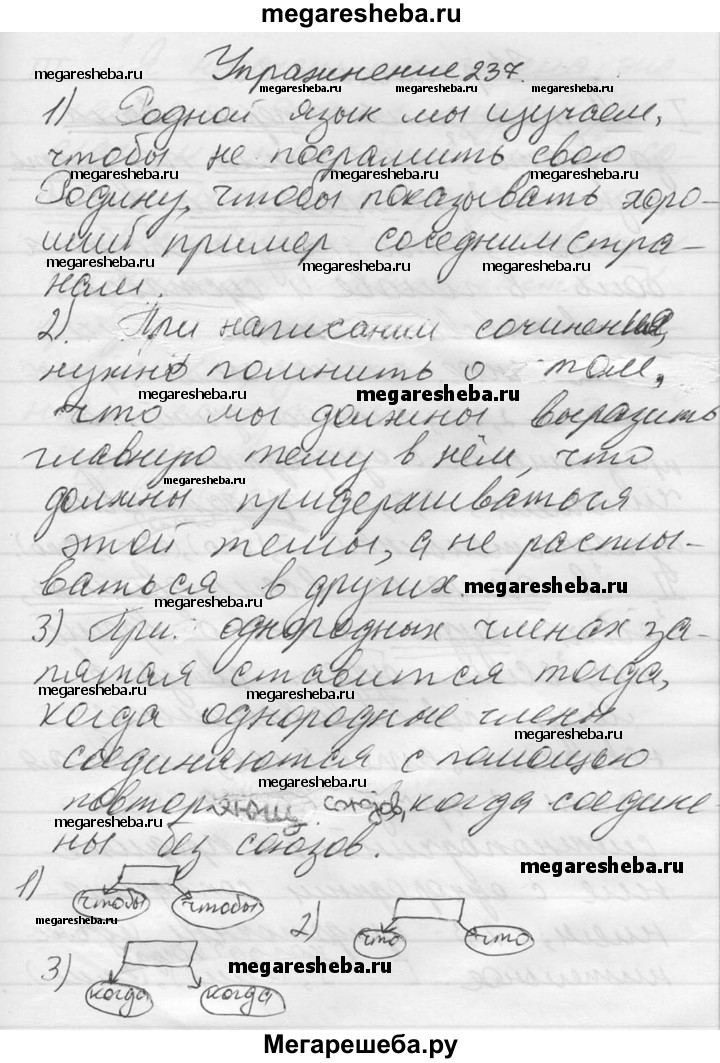 megaresheba.ru
Упражнение 237.
megaresheba.ru megaresheba.ru
1) Родной язык мы изучаем,
megaresheba.ru
чтобы не посрамить свою
megaresheba.ru megaresheba.ru megaresheba.ru
Родину, чтобы показывать хоро-
ший пример соседним стра-
megaresheba.ru megaresheba.ru megaresheba.ru
нам.
2). При написании сочинения,
нужно помнить о том,
megaresheba.ru megaresheba.ru
что мы должны выразить
главную тему в нём, что
megaresheba.ru
должны придерживаться
этой темы, а не расплы-
ваться в других.
megaresheba.ru
megaresheba.ru
3) При однородных членах за-
пятая ставится тогда,
megaresheba.ru megaresheba.ru
когда однородные члены
megaresheba.ru
соединяются с помощью
megaresheba.ru
повторяющ. союзов, когда соедине
megaresheba.ru
ны без союзов.
megaresheba.ru
1) чтобы чтобы
megaresheba.ru
2) что что
3) megaresheba.ru
когда когда
Мегарешеба.ру